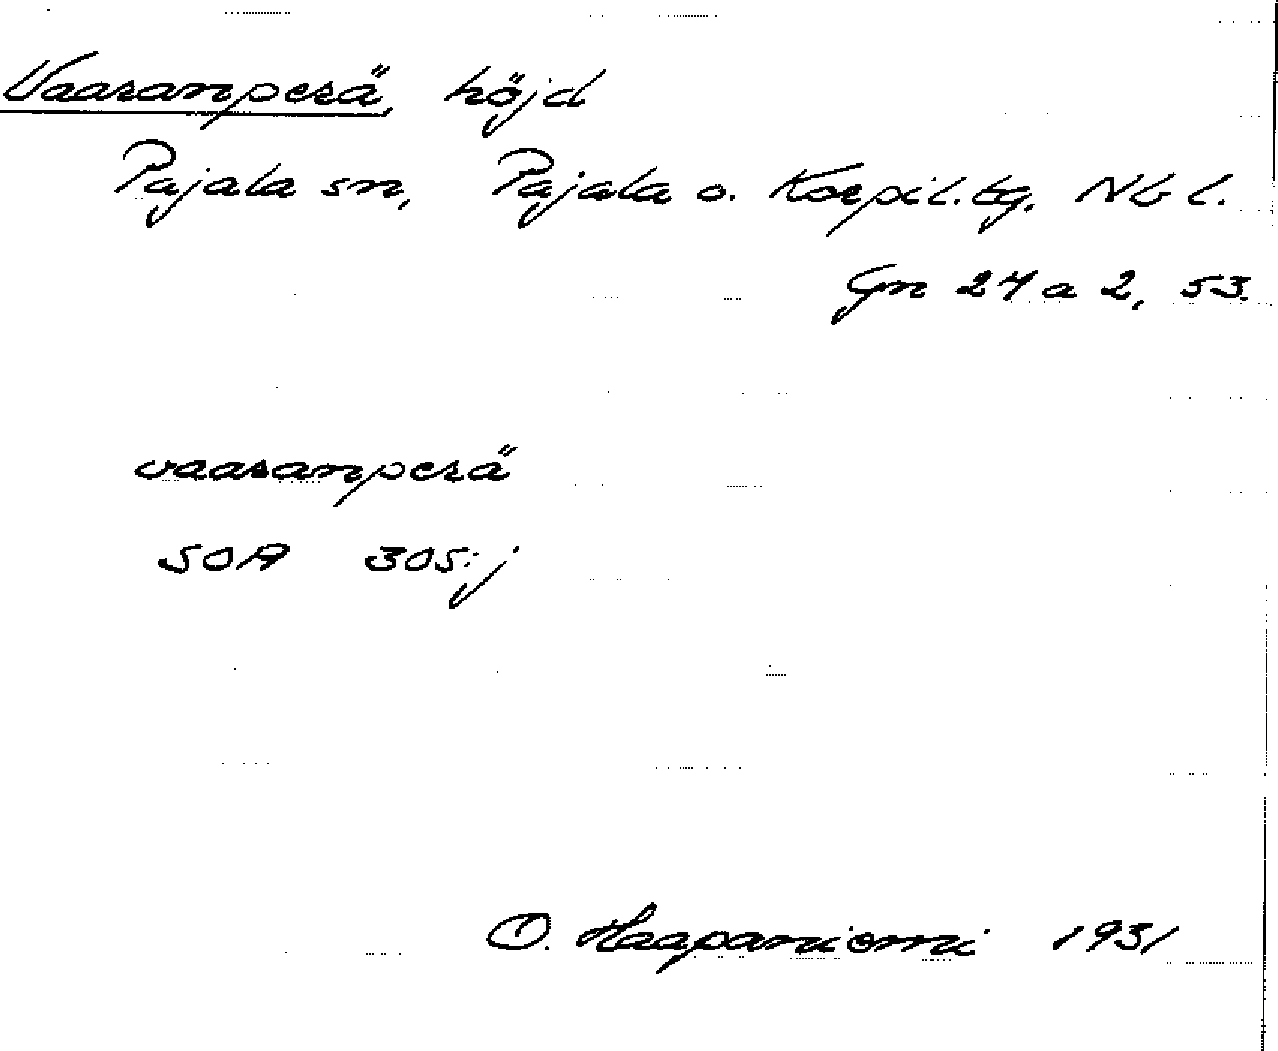 Vaaranperä, höjd
Pajala sn, Pajala o. Korpil. tg. Nb l.
Gn 24 a 2, 53.
vaaranperä
SOA 305:j
O. Haapaniemi 1931